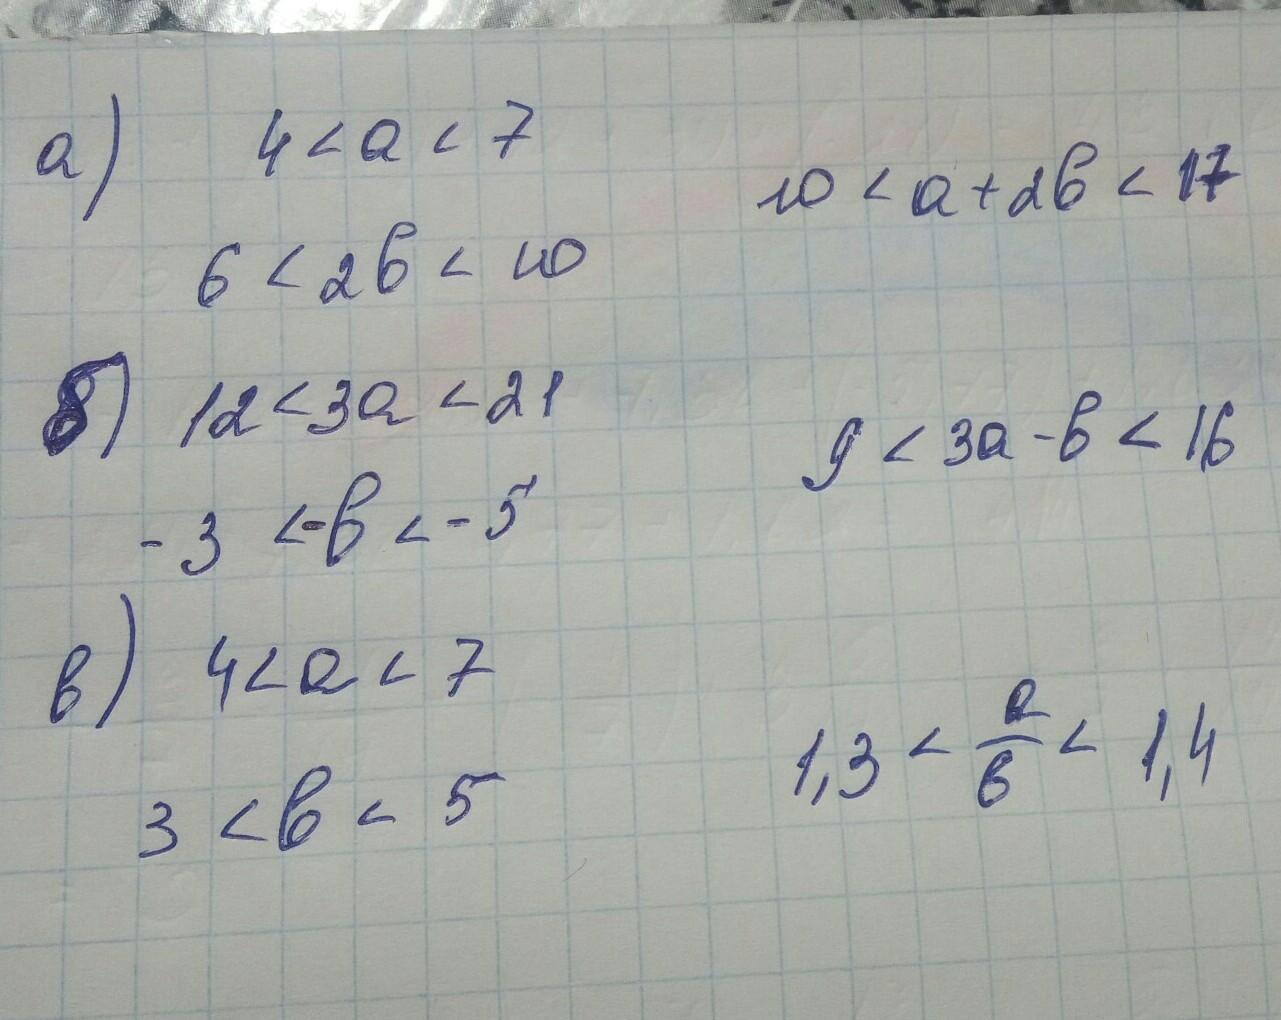 а) 4 < a < 7
10 < a + 2b < 17
6 < 2b < 10
б) 12 < 3a < 21
9 < 3a - b < 16
-3 < -b < -5
в) 4 < a < 7
1,3 < a/b < 1,4
3 < b < 5